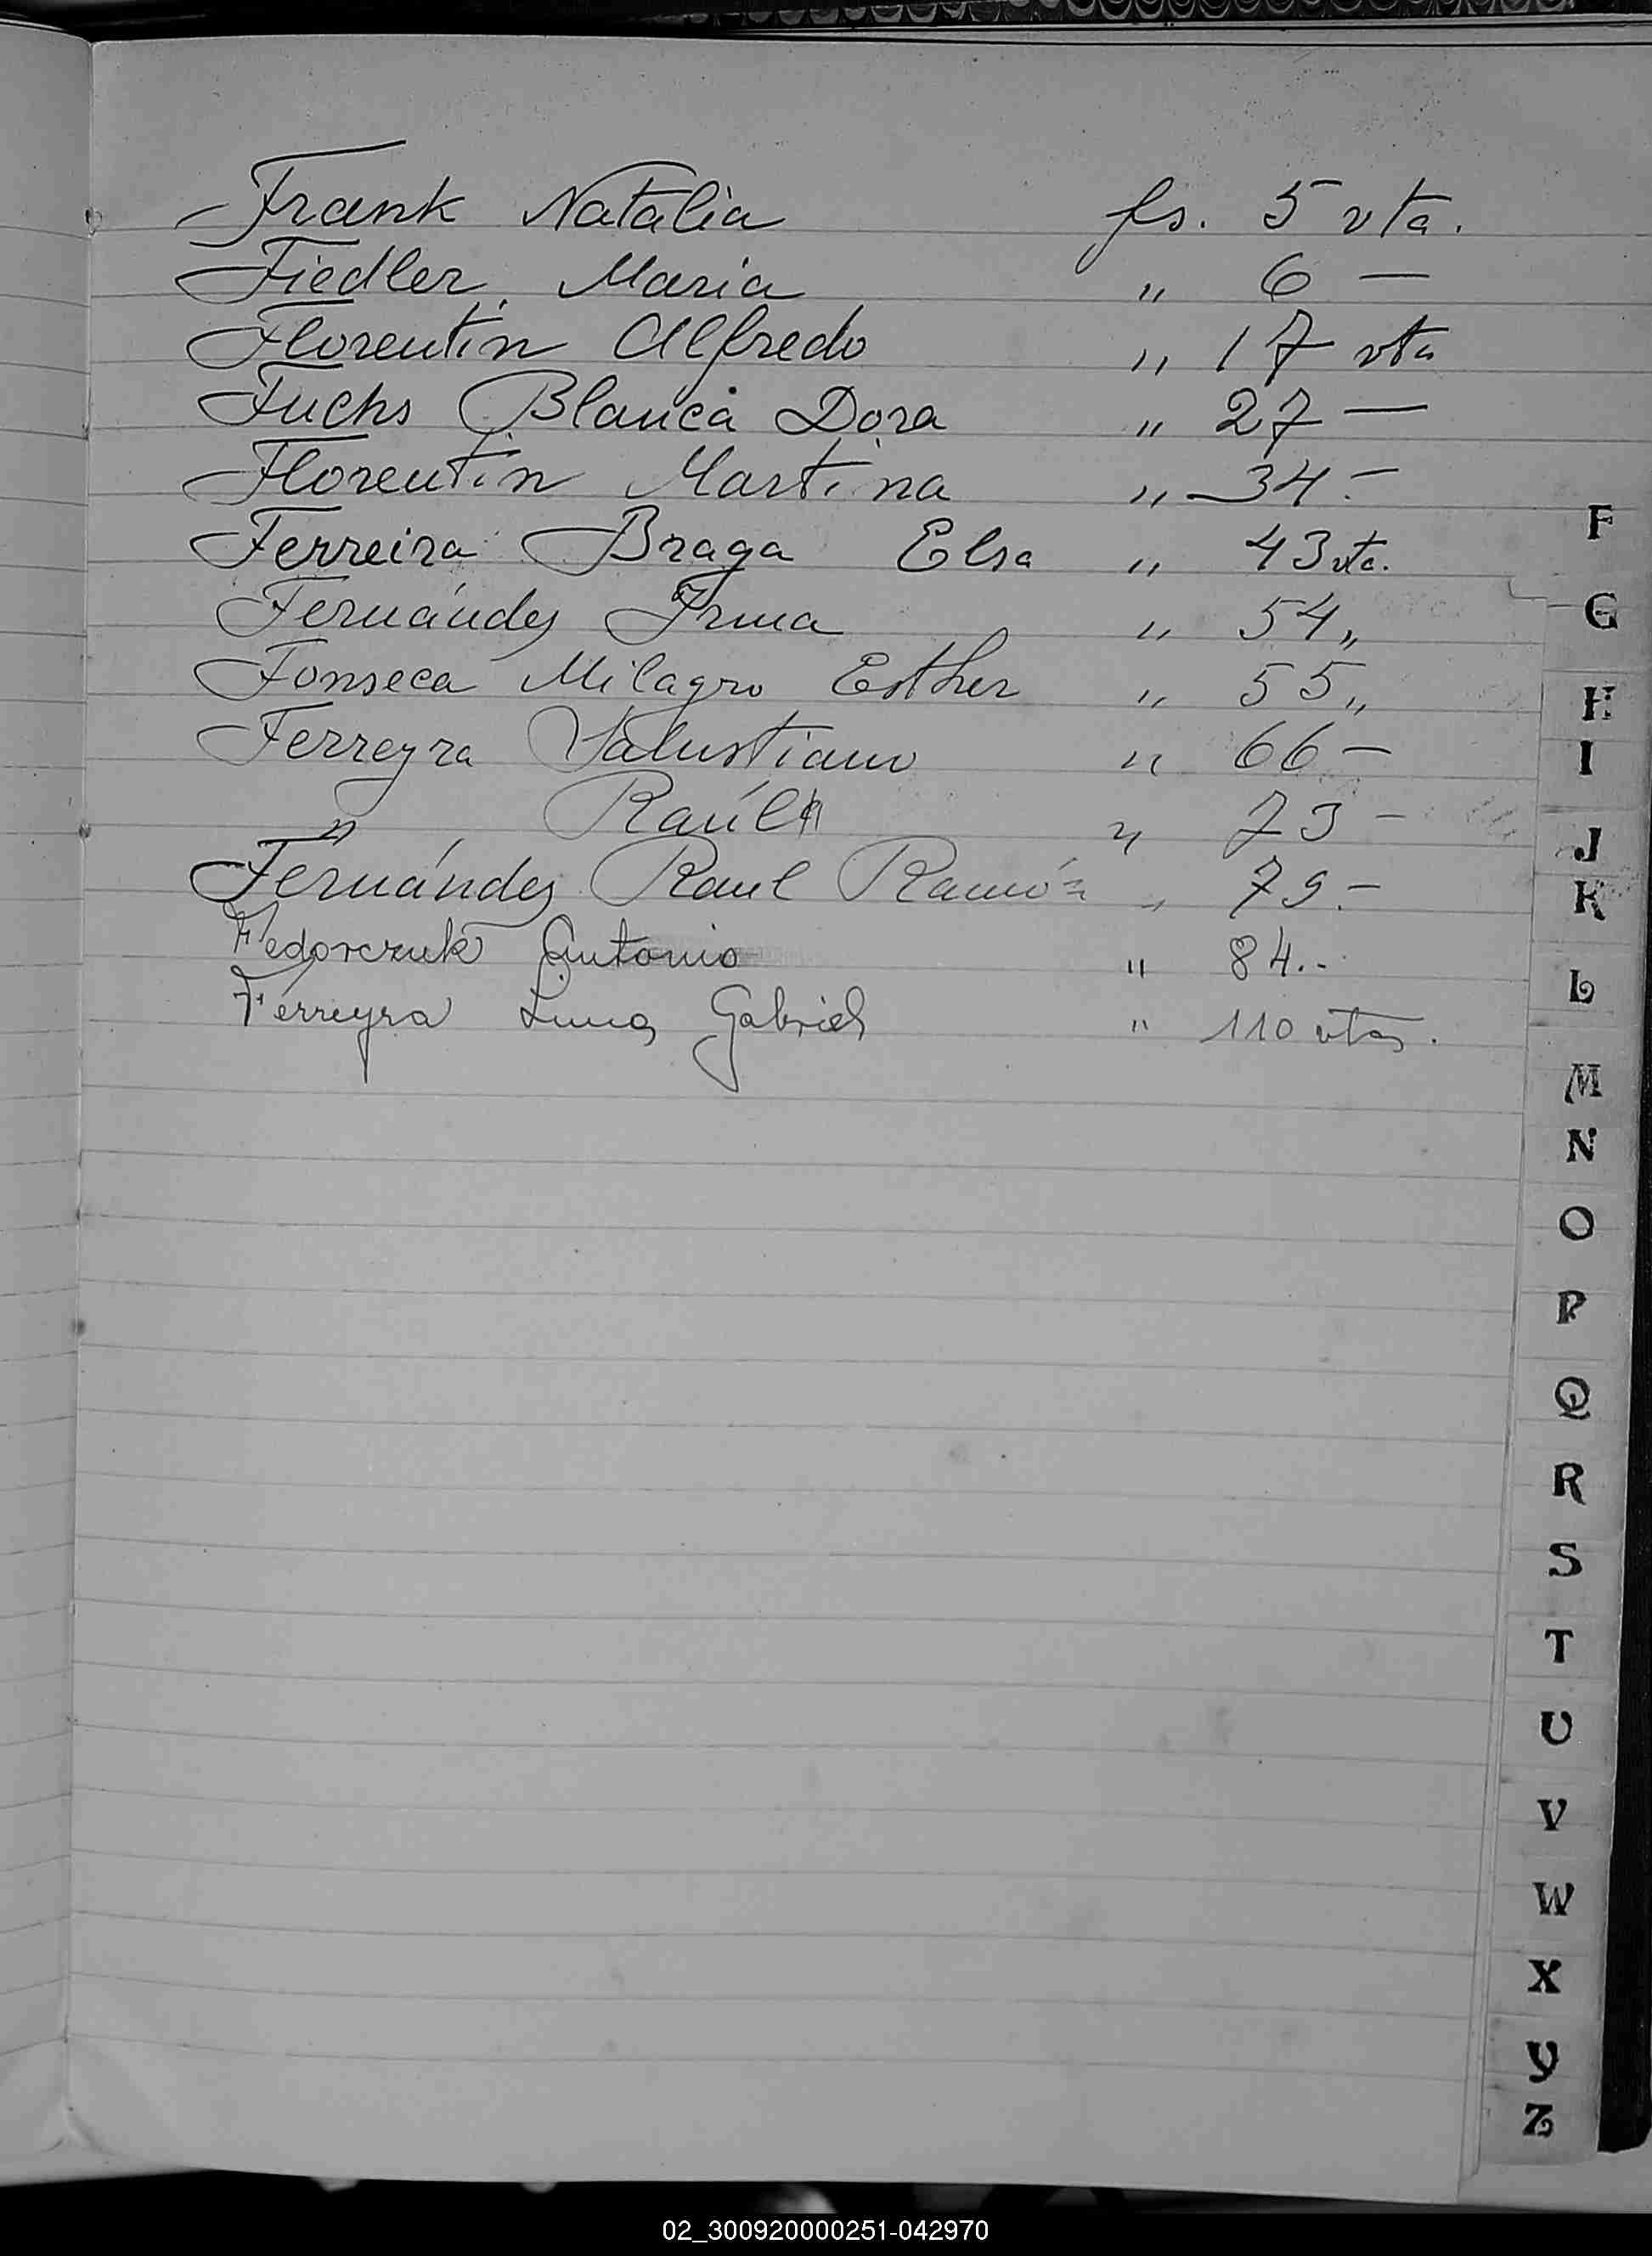 Frank Natalia fs. 5 vta.
Fiedler, Maria " 6 —
Florentin Alfredo " 17 vta
Fuchs Blanca Dora " 27 —
Florentin Martina " 34 -
Ferreira Braga Elsa " 43 vta.
Fernández Irma " 54 "
Fonseca Milagro Esther " 55 "
Ferreyra Salustiano " 66 —
" Raúl " 73 -
Fernández Raul Ramón " 79 -
Fedorczuk Antonio " 84.-
Ferreyra Gabriel " 110 vta.
F
G
H
I
J
K
L
M
N
O
P
Q
R
S
T
U
V
W
X
Y
Z
02_300920000251-042970